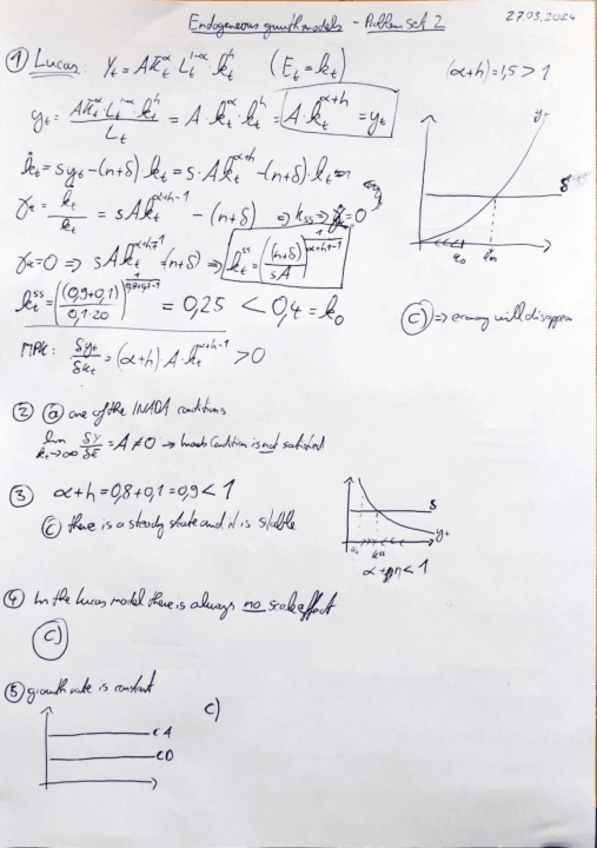 Endogeneous growth models - Problem Set 2
27.03.2024
① Lucas: Y_t = A K_t^α L_t^{1-α} · k_t^h (E_t = k_t)
(α+h) = 1,5 > 1
y_t = (A K_t^α · L_t^{1-α} · k_t^h) / L_t = A · k_t^α · k_t^h = A · k_t^{α+h} = y_t
k̇_t = s y_t - (n+δ) · k_t = s · A k_t^{α+h} - (n+δ)
γ_k = k̇_t / k_t = s A k_t^{α+h-1} - (n+δ) ⇒ k_ss ⇒ = 0
γ_k = 0 ⇒ s A k_t^{α+h-1} (n+δ) ⇒ k_t^{ss} = ((n+δ) / sA)^{1/(α+h-1)}
k_t^{ss} = ((0,9+0,1) / 0,1·20) = 0,25 < 0,4 = k_0
y_t
δ
k_0
k_ss
ⓒ ⇒ economy will disappear
MPK: δy_t / δk_t = (α+h) · A · k_t^{α+h-1} > 0
② ⓐ one of the INADA conditions
lim k_t→∞ δY / δK = A ≠ 0 → Inada Condition is not satisfied
③ α+h = 0,8+0,1 = 0,9 < 1
ⓒ there is a steady state and it is stable
δ
y_t
k_0 k_ss
< 1
④ In the Lucas model there is always no scale effect
ⓒ
⑤ growth rate is constant
c)
CA
CD